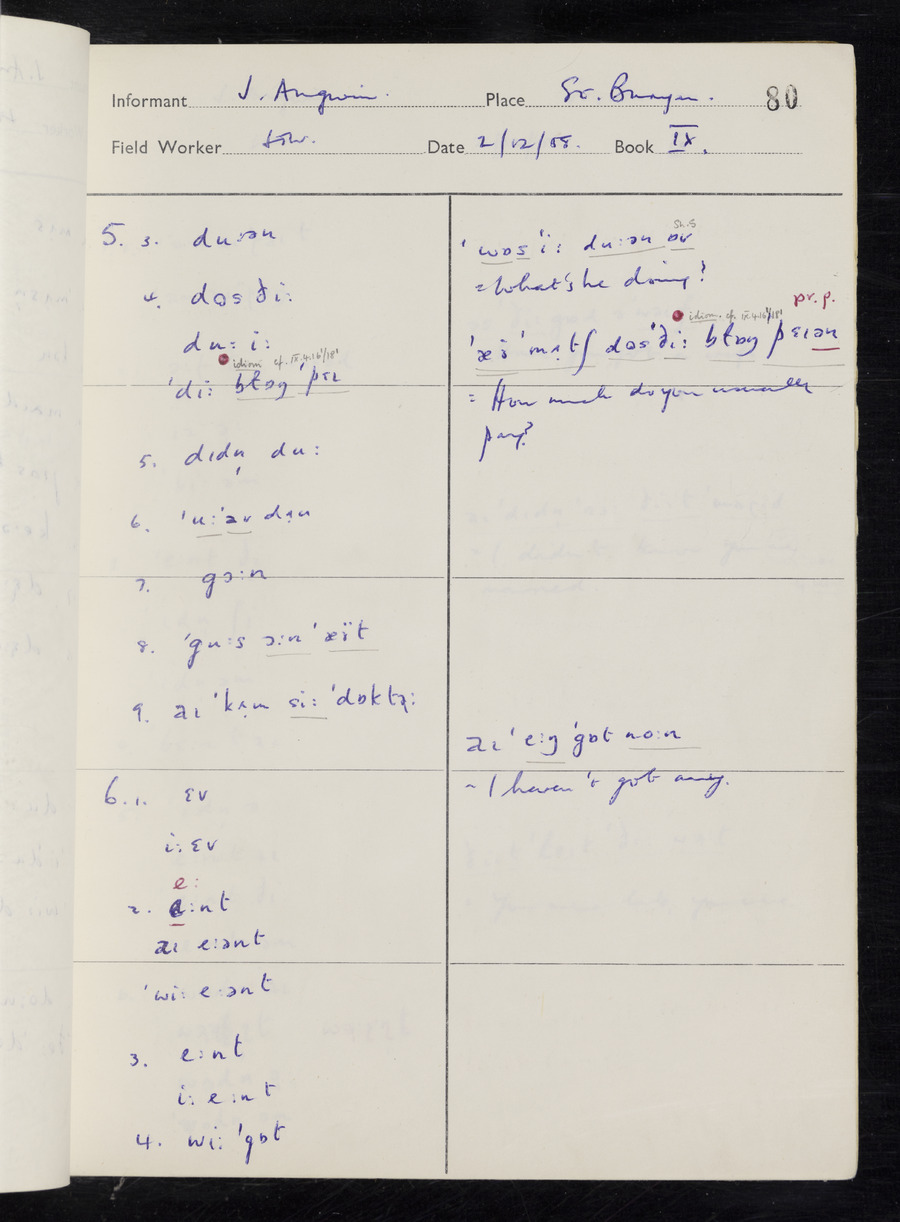 Informant J. Angwin. Place St. Buryan. 80
Field Worker Date 2/12/55. Book IX.
5. 3. du:ən
4. dəs ði:
du: i:
idiom cf. IX.4.16/18'
'di: bləg 'pɛɪ
5. dɪdn̩ du:
6. 'u:'əv dʌn
7. gɔ:n
8. 'gu:s ɔ:n' æït
9. aɪ 'kʌm si: 'dɒktə̣:
6. 1. ɛv
i: ɛv
e:
2. e:nt
aɪ e:ənt
'wi: e:ənt
3. e:nt
i: e:nt
4. wi: 'gɒt
'wɒs 'i: du:ən əv
=What's he doing?
pr. p.
idiom. cf. IX.4.16/18'
'mʌtʃ dəs 'ði: bləg pɛɪən
= How much do you usually
pay?
aɪ 'e:ŋ 'gɒt no:n
= I haven't got any.